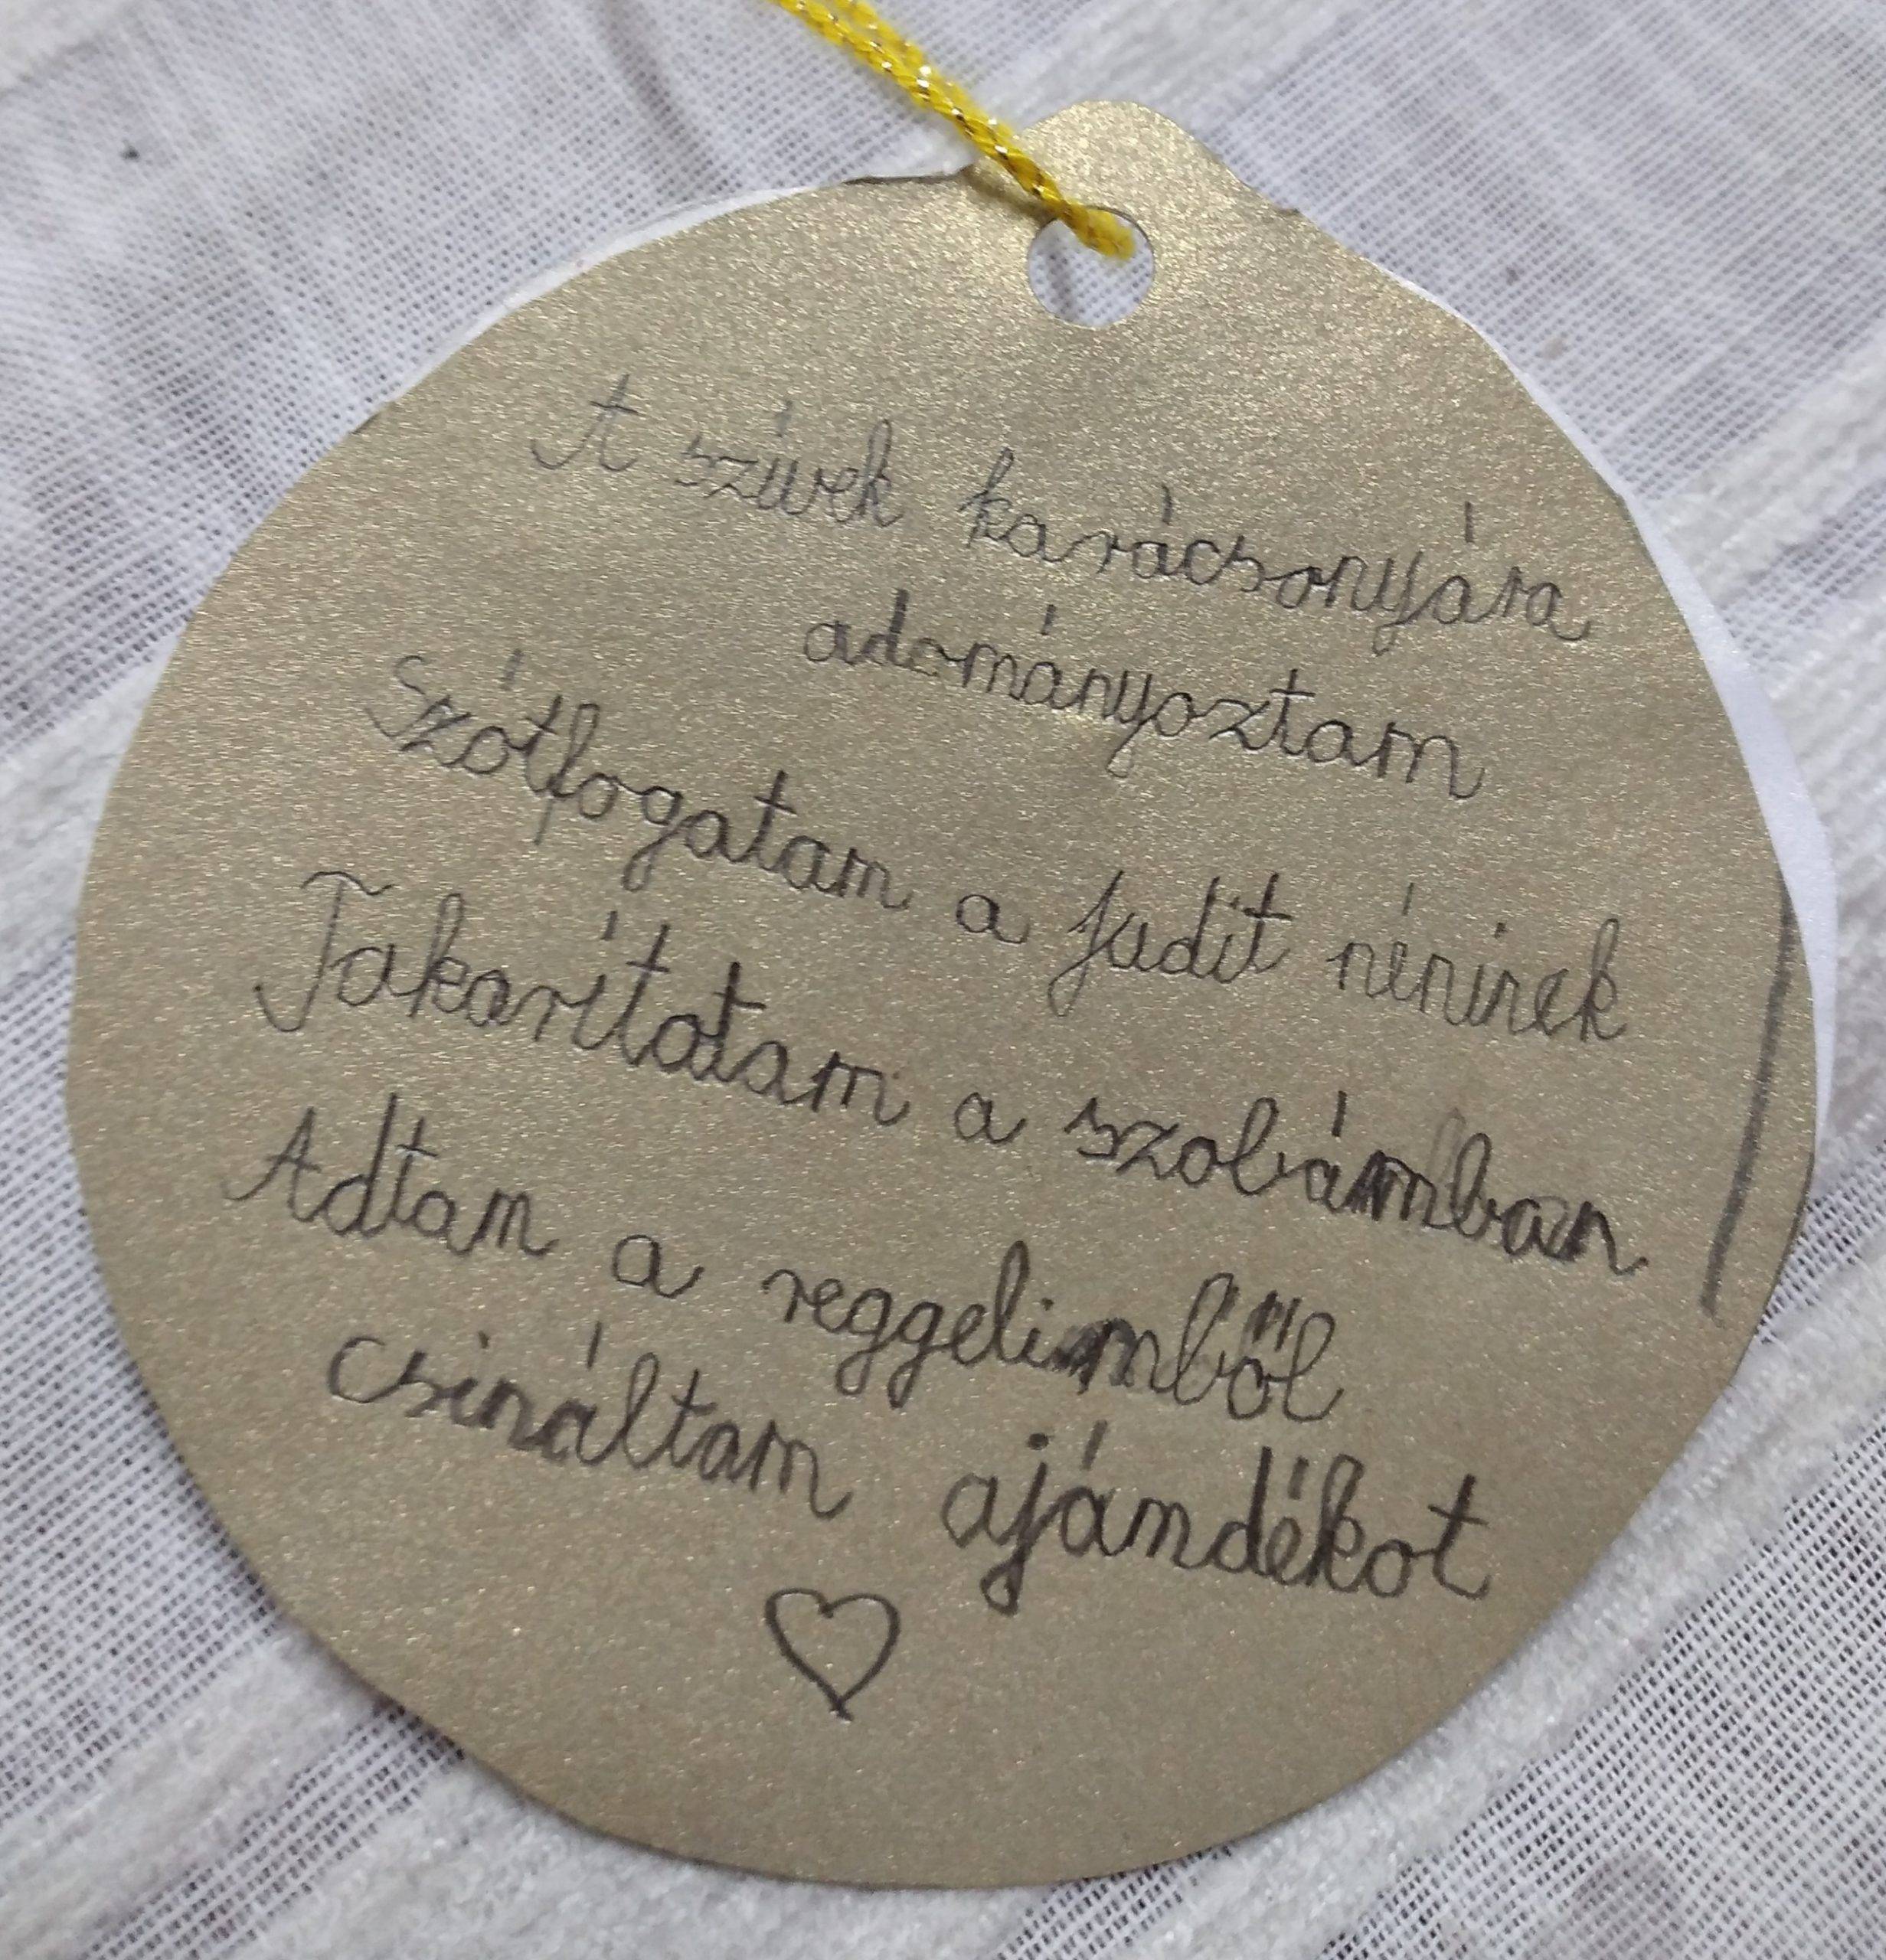 A szívek karácsonyára
adományoztam
Szótfogatam a Judit nérinek
Takarítotam a szobámban
Adtam a reggelimből
csináltam ajándékot